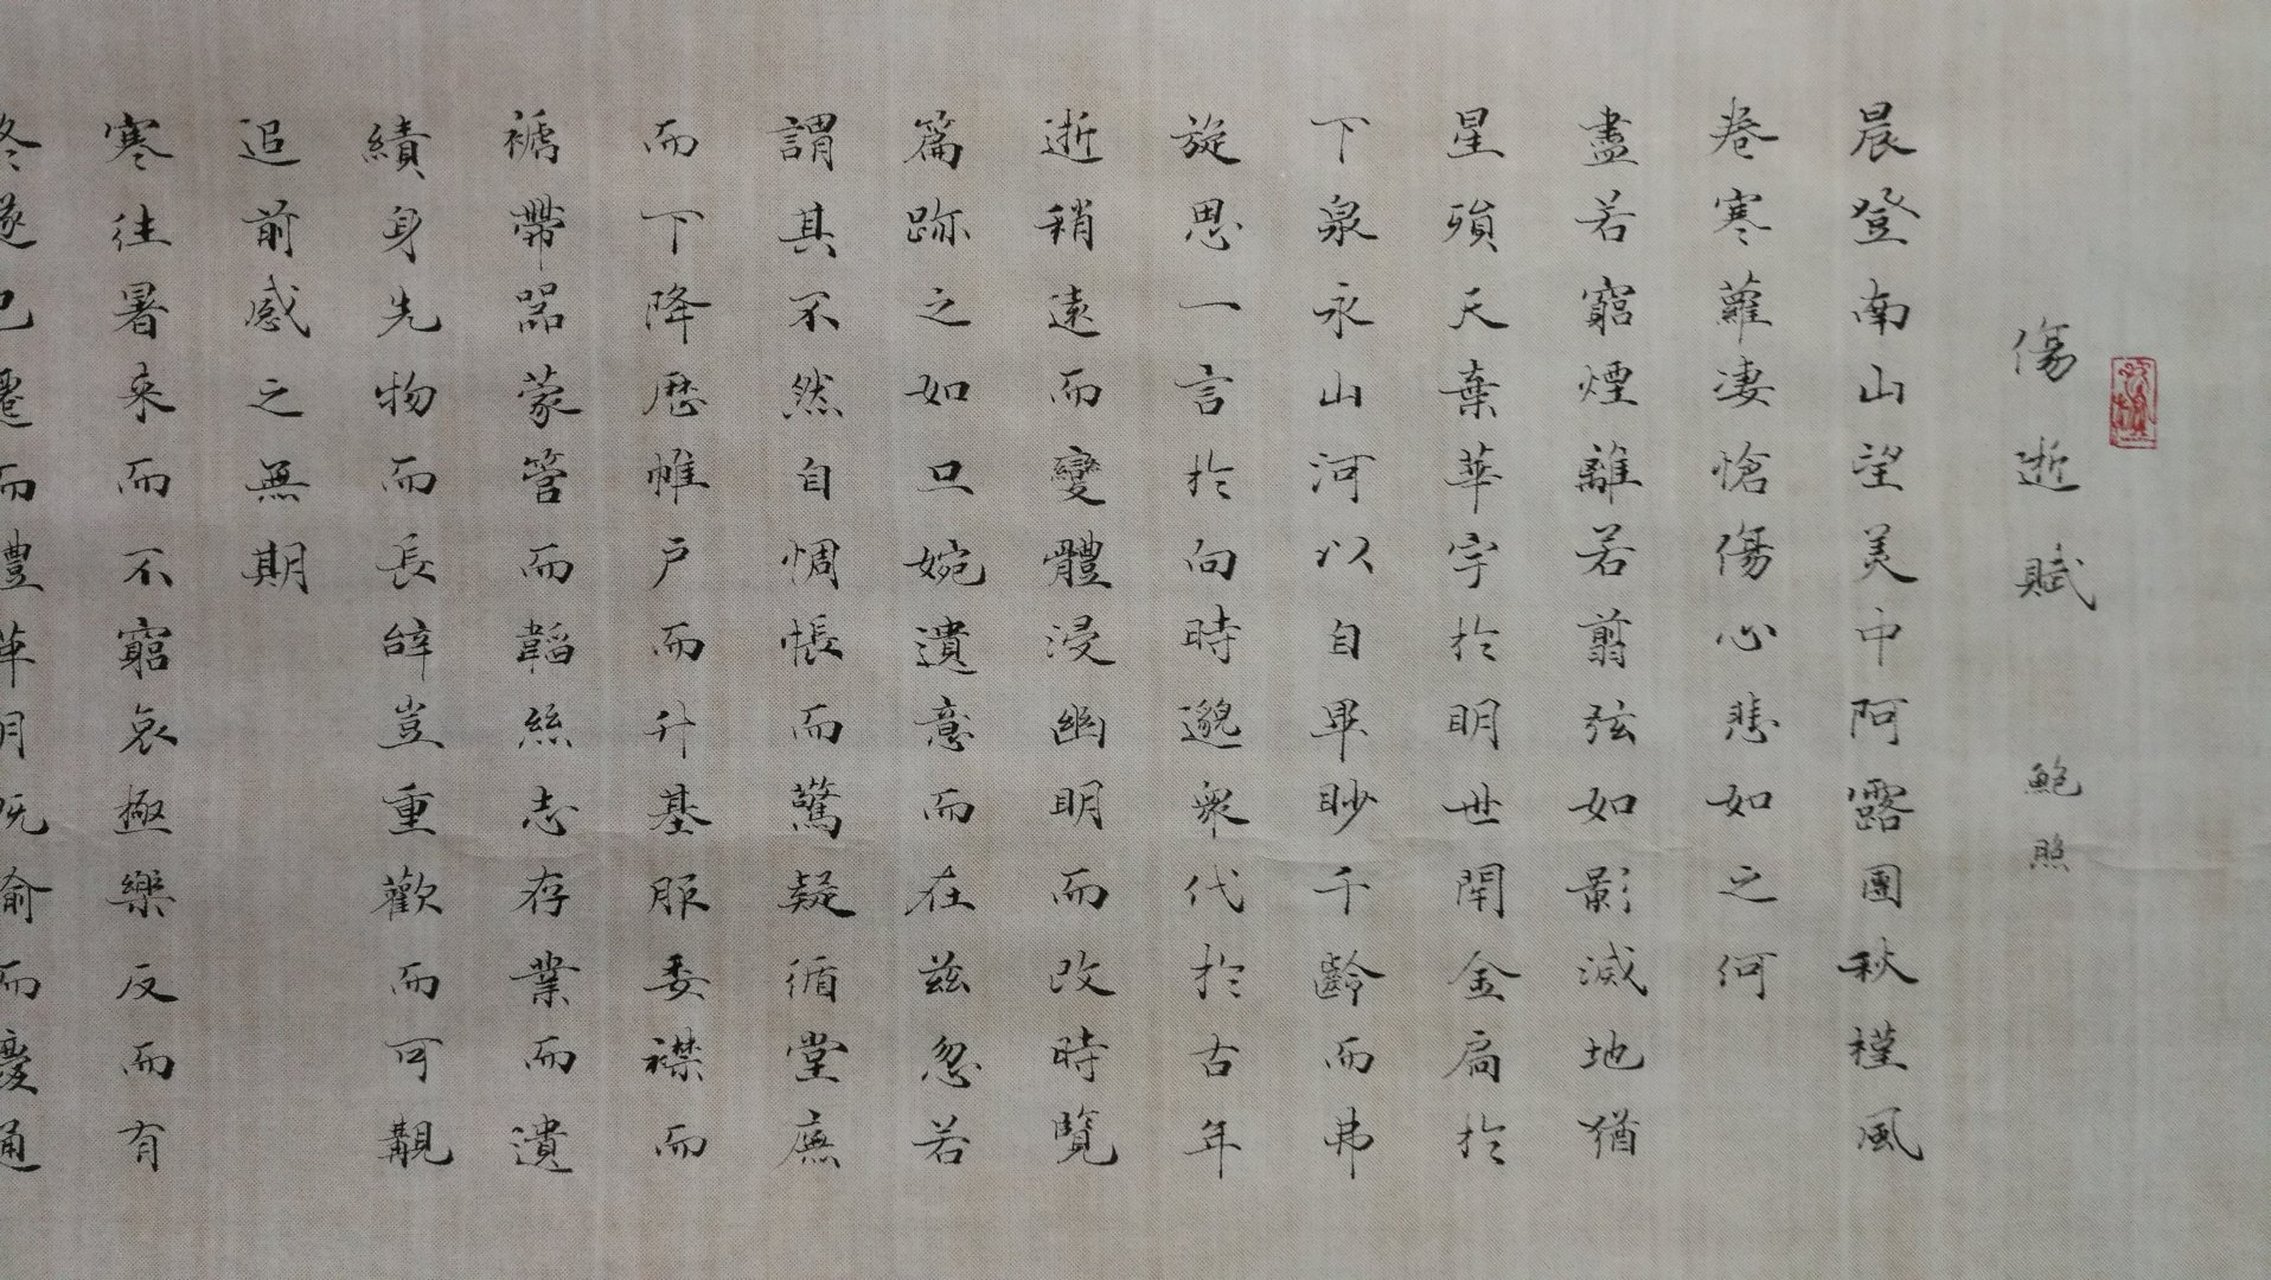 傷逝賦 鮑照
晨登南山望美中阿露團秋槿風
卷寒蘿凄愴傷心悲如之何
盡若窮煙離若翦弦如影滅地猶
星殞天棄華宇於明世閉金扃於
下泉永山河以自畢眇千齡而弗
旋思一言於向時邈衆代於古年
逝稍遠而變體浸幽明而改時覽
篇跡之如旦婉遺意而在茲忽若
謂其不然自惆悵而驚疑循堂廡
而下降歷帷户而升基服委襟而
褫帶器蒙管而韜絲志存業而遺
績身先物而長辭豈重歡而可覯
追前感之無期
寒往暑來而不窮哀極樂反而有
冬遂已遷而豐革月既逾而慶通